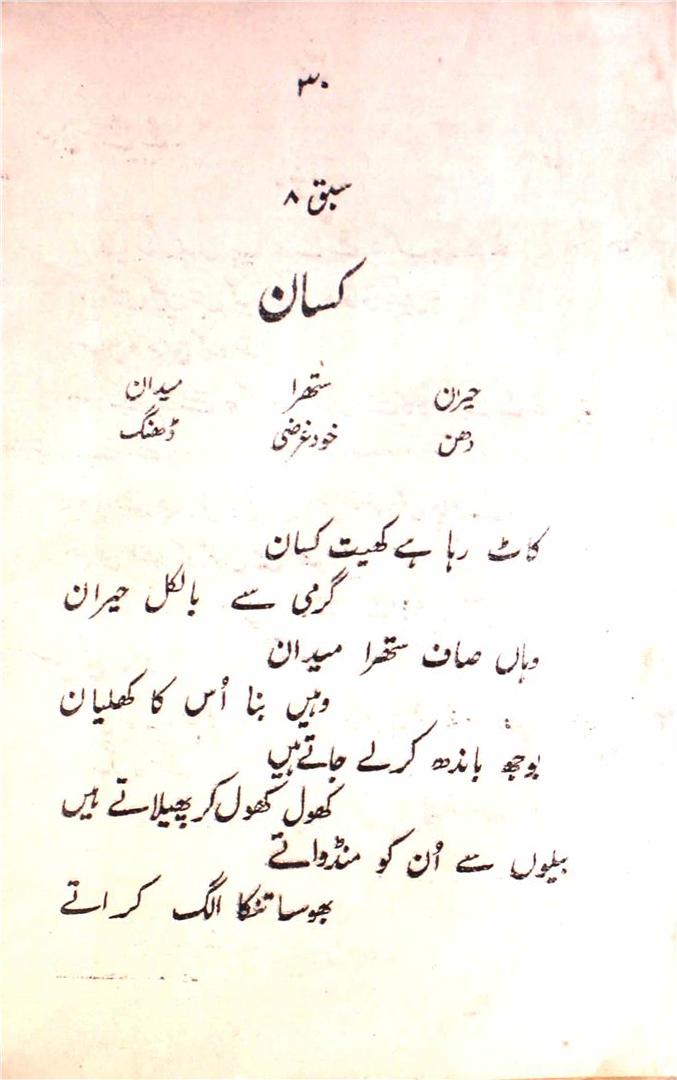 ۳۰
سبق ۸
کسان
حیران ستھرا میدان
دھن خودغرضی ڈھنگ
کاٹ رہا ہے کھیت کسان
گرمی سے بالکل حیران
وہاں صاف ستھرا میدان
وہیں بنا اُس کا کھلیان
بوجھ باندھ کر لے جاتے ہیں
کھول کھول کر پھیلاتے ہیں
بیلوں سے اُن کو منڈواتے
بھوسا تنکا الگ کراتے